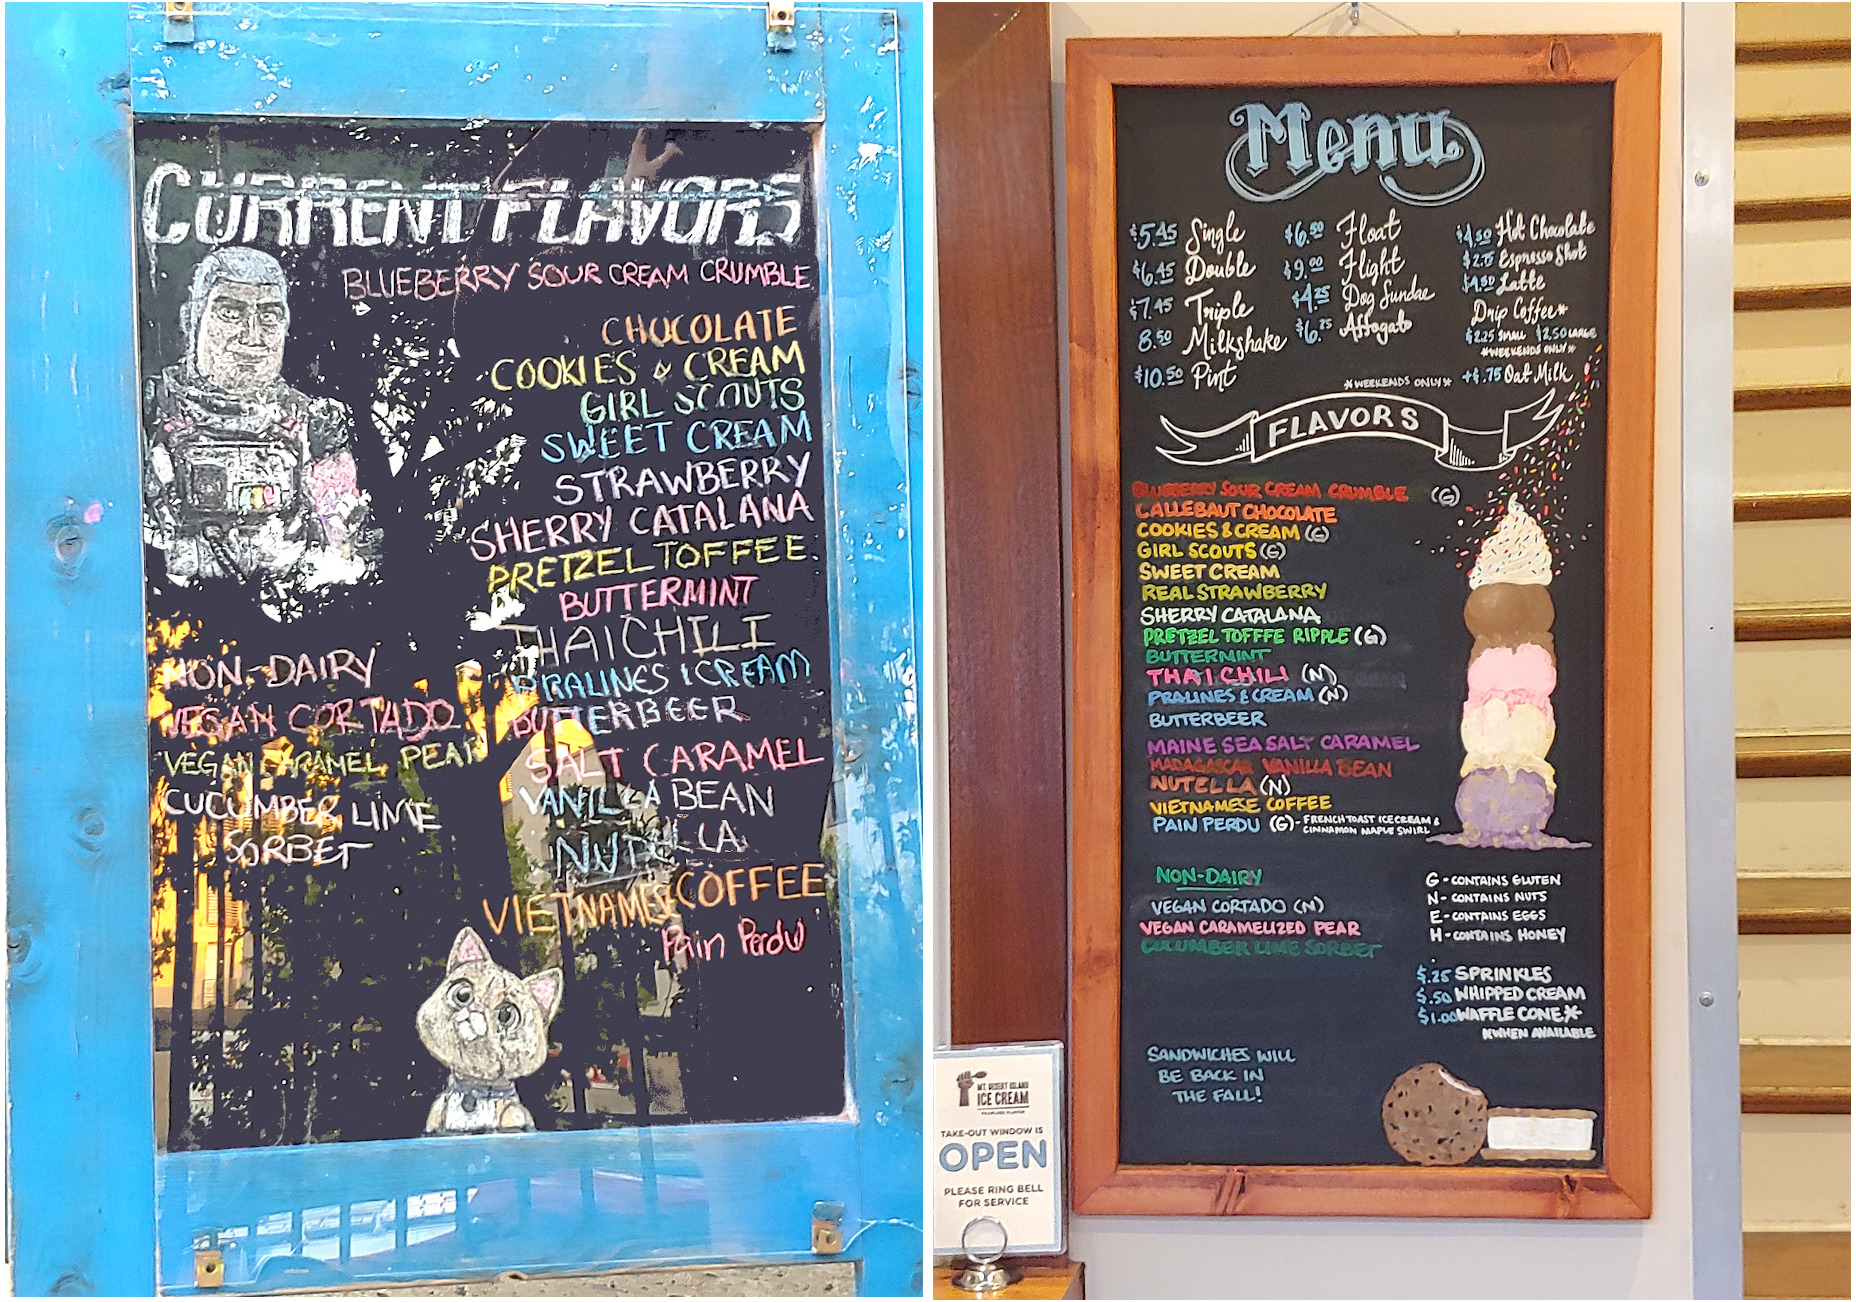 CURRENT FLAVORS
BLUEBERRY SOUR CREAM CRUMBLE
CHOCOLATE
COOKIES & CREAM
GIRL SCOUTS
SWEET CREAM
STRAWBERRY
SHERRY CATALANA
PRETZEL TOFFEE
BUTTERMINT
THAI CHILI
PRALINES & CREAM
BUTTERBEER
SALT CARAMEL
VANILLA BEAN
NUTELLA
VIETNAMESE COFFEE
Pain Perdu
NON-DAIRY
VEGAN CORTADO
VEGAN CARAMEL PEAR
CUCUMBER LIME
SORBET
Menu
$5.45 Single
$6.45 Double
$7.45 Triple
8.50 Milkshake
$10.50 Pint
$6.50 Float
$9.00 Flight
$4.25 Dog Sundae
$6.25 Affogato
*WEEKENDS ONLY*
$4.50 Hot Chocolate
$2.75 Espresso Shot
$4.50 Latte
Drip Coffee*
$2.25 SMALL $2.50 LARGE
*WEEKENDS ONLY*
+$.75 Oat Milk
FLAVORS
BLUEBERRY SOUR CREAM CRUMBLE (G)
CALLEBAUT CHOCOLATE
COOKIES & CREAM (G)
GIRL SCOUTS (G)
SWEET CREAM
REAL STRAWBERRY
SHERRY CATALANA
PRETZEL TOFFFE RIPPLE (G)
BUTTERMINT
THAI CHILI (N)
PRALINES & CREAM (N)
BUTTERBEER
MAINE SEA SALT CARAMEL
MADAGASCAR VANILLA BEAN
NUTELLA (N)
VIETNAMESE COFFEE
PAIN PERDU (G) - FRENCH TOAST ICE CREAM &
CINNAMON MAPLE SWIRL
NON-DAIRY
VEGAN CORTADO (N)
VEGAN CARAMELIZED PEAR
CUCUMBER LIME SORBET
G - CONTAINS GLUTEN
N - CONTAINS NUTS
E - CONTAINS EGGS
H - CONTAINS HONEY
$.25 SPRINKLES
$.50 WHIPPED CREAM
$1.00 WAFFLE CONE*
*WHEN AVAILABLE
SANDWICHES WILL
BE BACK IN
THE FALL!
MT. DESERT ISLAND
ICE CREAM
FEARLESS FLAVOR
TAKE-OUT WINDOW IS
OPEN
PLEASE RING BELL
FOR SERVICE